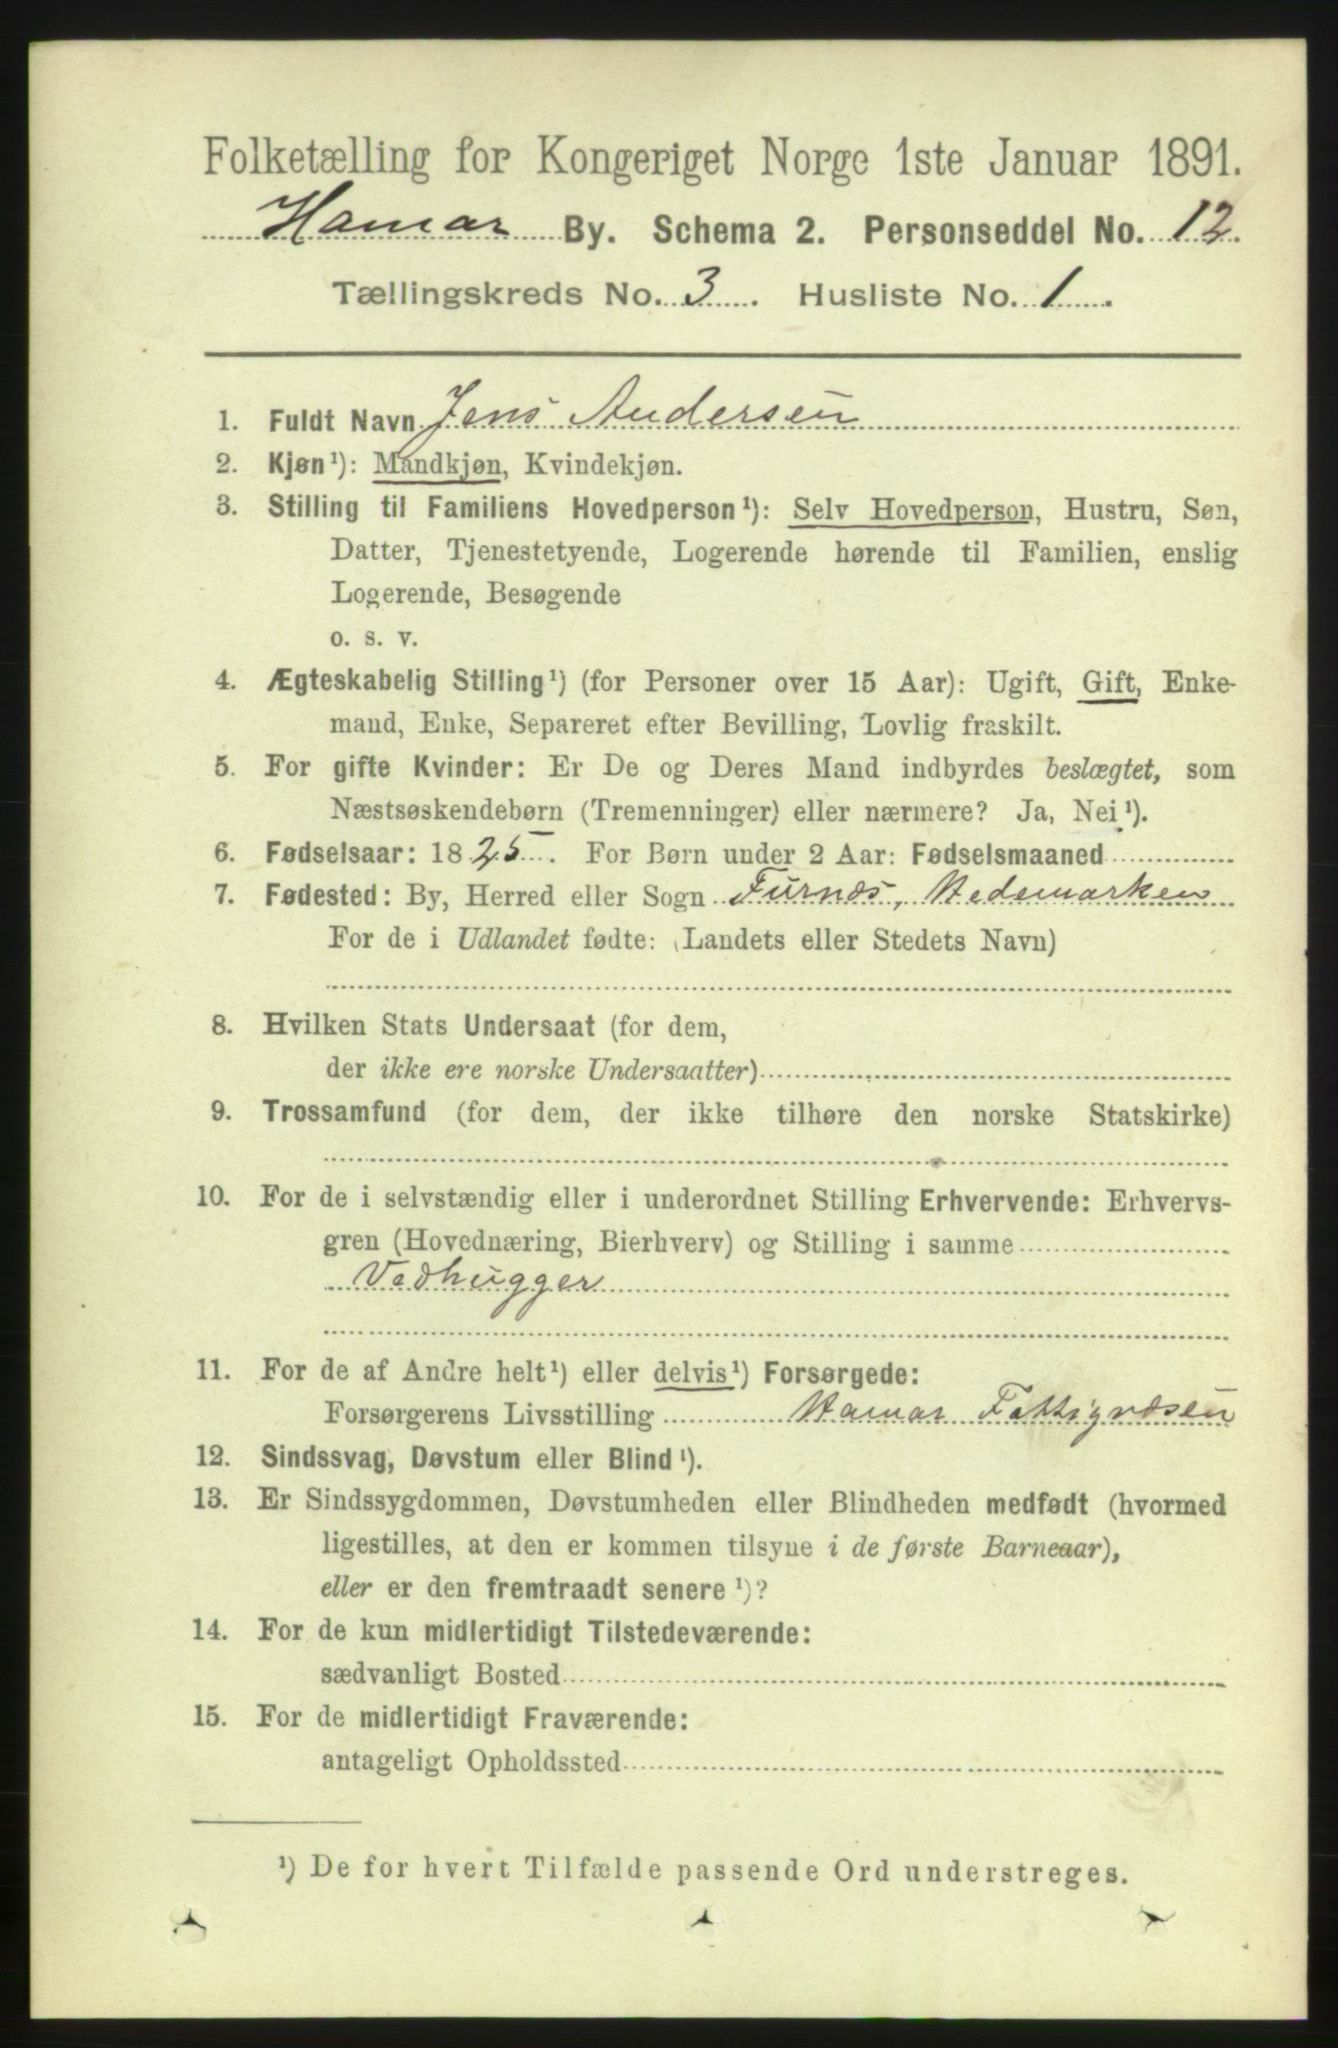 Folketælling for Kongeriget Norge 1ste Januar 1891.
Hamar By. Schema 2. Personseddel No. 12.
Tællingskreds No. 3. Husliste No. 1.
1. Fuldt Navn Jens Andersen
2. Kjøn¹): Mandkjøn, Kvindekjøn.
3. Stilling til Familiens Hovedperson¹): Selv Hovedperson, Hustru, Søn,
Datter, Tjenestetyende, Logerende hørende til Familien, enslig
Logerende, Besøgende
o. s. v.
4. Ægteskabelig Stilling¹) (for Personer over 15 Aar): Ugift, Gift, Enke-
mand, Enke, Separeret efter Bevilling, Lovlig fraskilt.
5. For gifte Kvinder: Er De og Deres Mand indbyrdes beslægtet, som
Næstsøskendebørn (Tremenninger) eller nærmere? Ja, Nei¹).
6. Fødselsaar: 1825. For Børn under 2 Aar: Fødselsmaaned
7. Fødested: By, Herred eller Sogn Furnæs, Hedemarken
For de i Udlandet fødte: (Landets eller Stedets Navn)
8. Hvilken Stats Undersaat (for dem,
der ikke ere norske Undersaatter)
9. Trossamfund (for dem, der ikke tilhøre den norske Statskirke)
10. For de i selvstændig eller i underordnet Stilling Erhvervende: Erhvervs-
gren (Hovednæring, Bierhverv) og Stilling i samme
Vedhugger
11. For de af Andre helt¹) eller delvis¹) Forsørgede:
Forsørgerens Livsstilling Hamar Fattigvæsen
12. Sindssvag, Døvstum eller Blind¹).
13. Er Sindssygdommen, Døvstumheden eller Blindheden medfødt (hvormed
ligestilles, at den er kommen tilsyne i de første Barneaar),
eller er den fremtraadt senere¹)?
14. For de kun midlertidigt Tilstedeværende:
sædvanligt Bosted
15. For de midlertidigt Fraværende:
antageligt Opholdssted
¹) De for hvert Tilfælde passende Ord understreges.